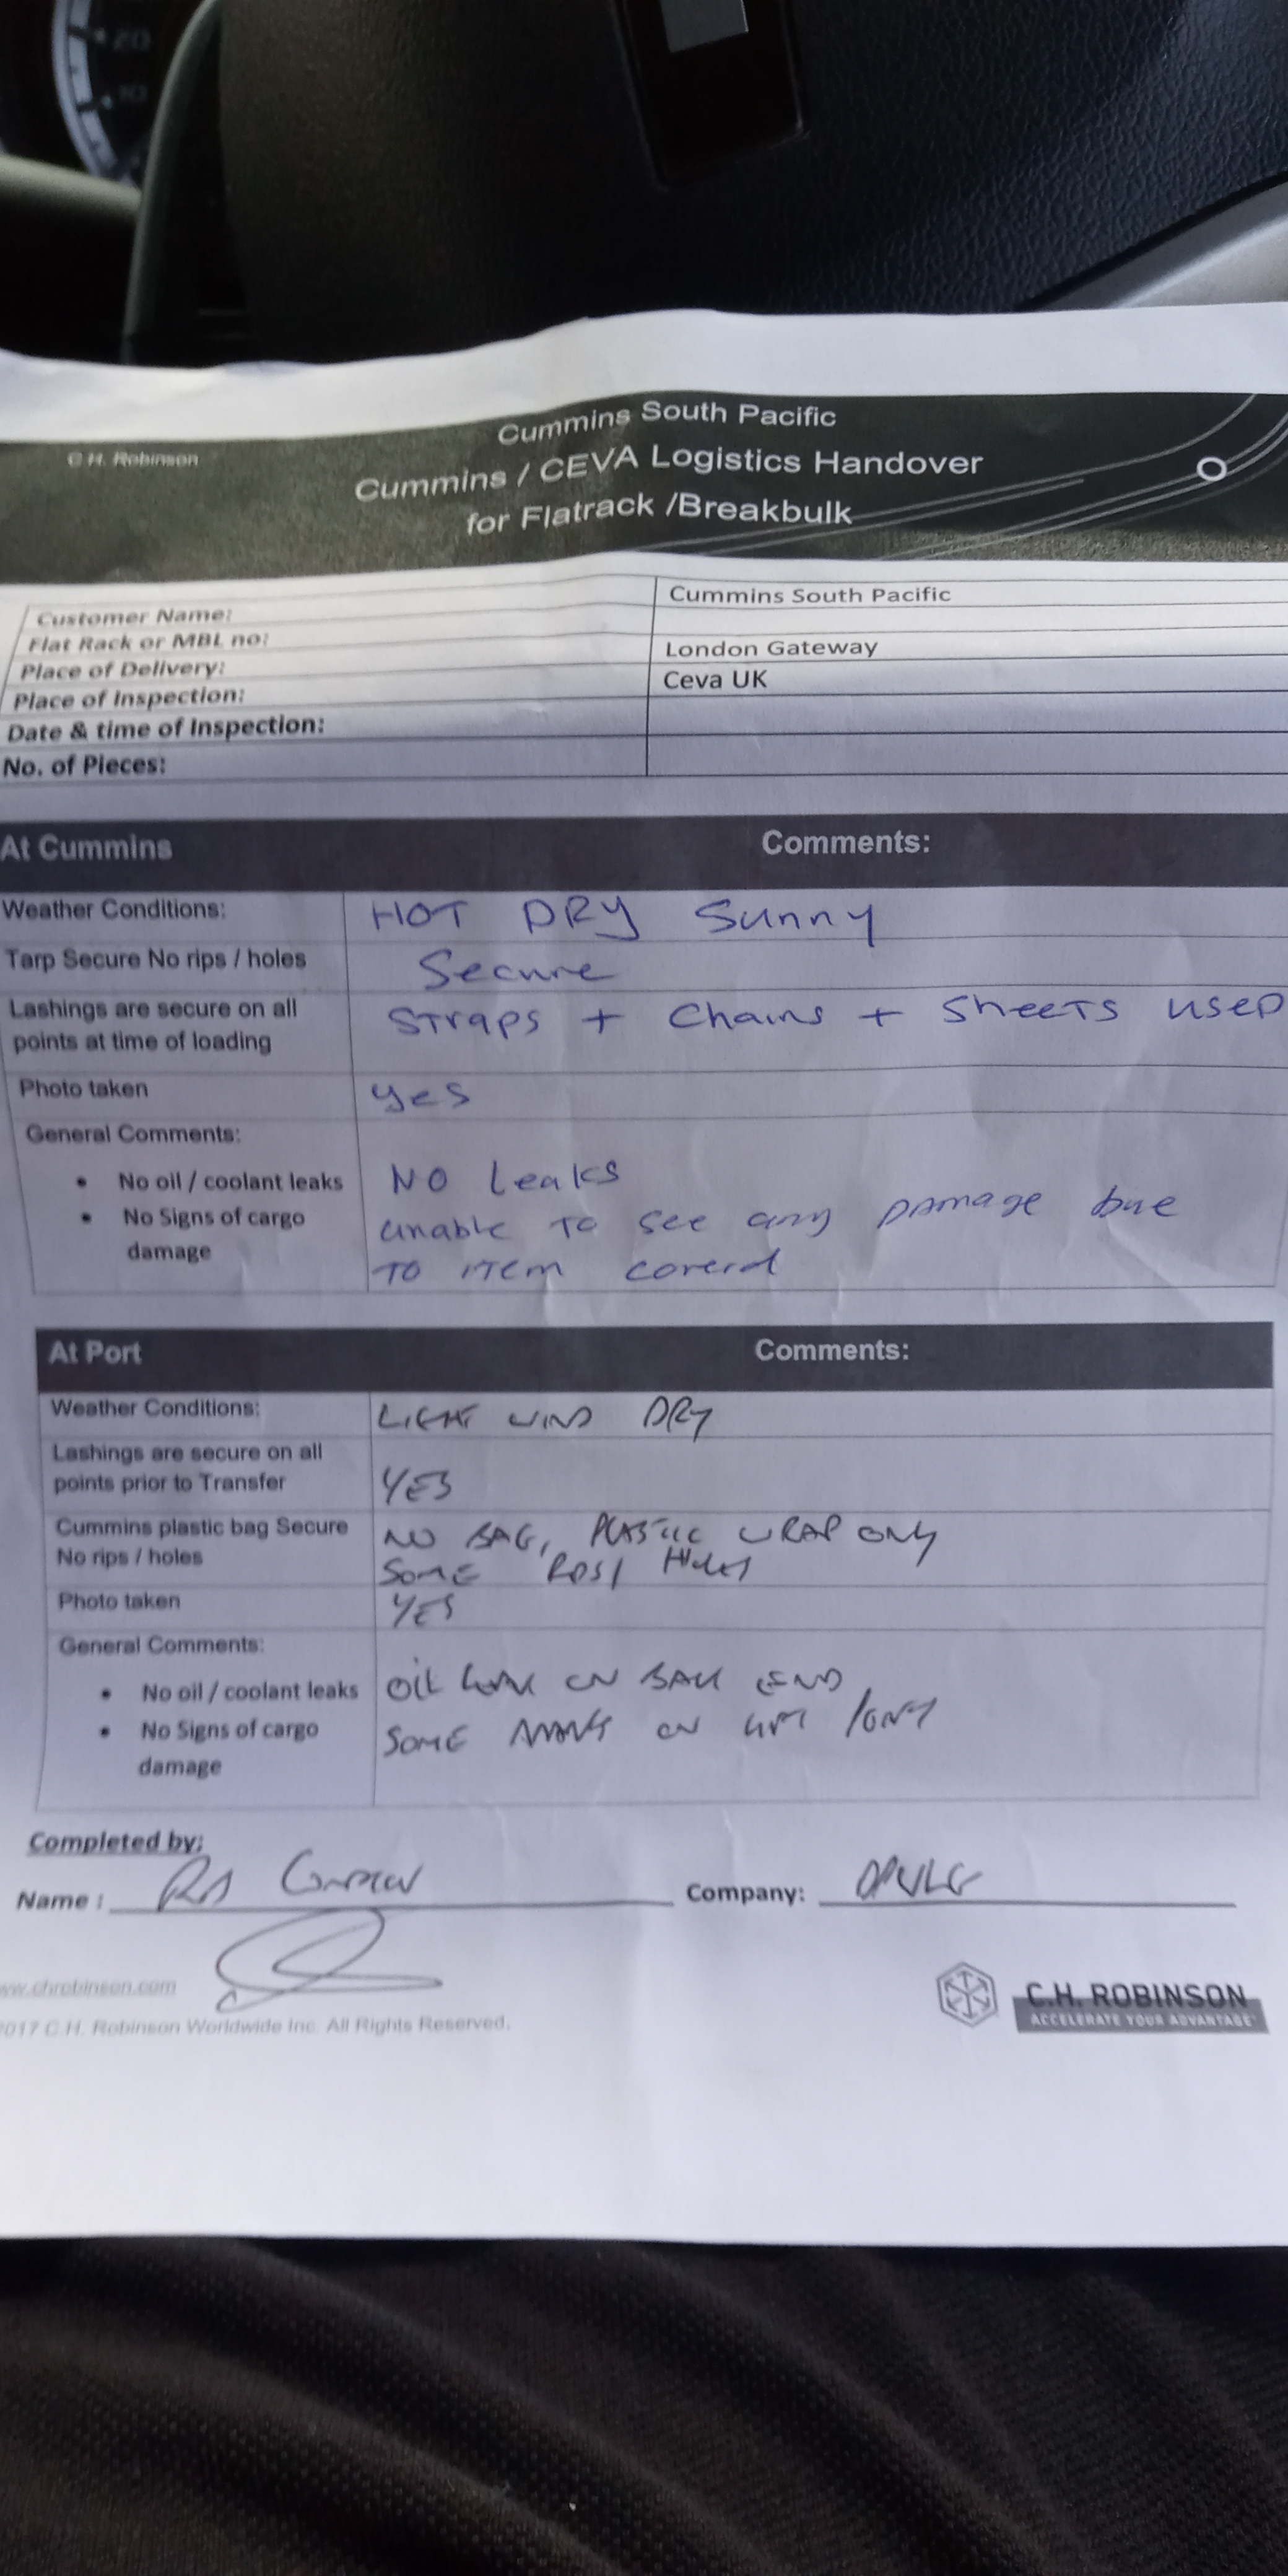 20
10
C.H. Robinson
Cummins South Pacific
Cummins / CEVA Logistics Handover
for Flatrack /Breakbulk
Customer Name: Cummins South Pacific
Flat Rack or MBL no:
Place of Delivery: London Gateway
Place of Inspection: Ceva UK
Date & time of Inspection:
No. of Pieces:
At Cummins Comments:
Weather Conditions: HOT DRY Sunny
Tarp Secure No rips / holes Secure
Lashings are secure on all
points at time of loading
STraps + Chains + SheeTS used
Photo taken yes
General Comments:
• No oil / coolant leaks NO Leaks
• No Signs of cargo
damage
unable To see any Damage due
TO ITem coverd
At Port Comments:
Weather Conditions: LIGHT WIND DRY
Lashings are secure on all
points prior to Transfer
YES
Cummins plastic bag Secure
No rips / holes
NO BAG, PLASTIC WRAP ONLY
SOME RIPS/ HOLES
Photo taken YES
General Comments:
• No oil / coolant leaks OIL LEAK ON BACK END
• No Signs of cargo
damage
SOME MARKS ON
Completed by:
Name : Company:
ww.chrobinson.com
2017 C.H. Robinson Worldwide Inc. All Rights Reserved.
C.H. ROBINSON
ACCELERATE YOUR ADVANTAGE